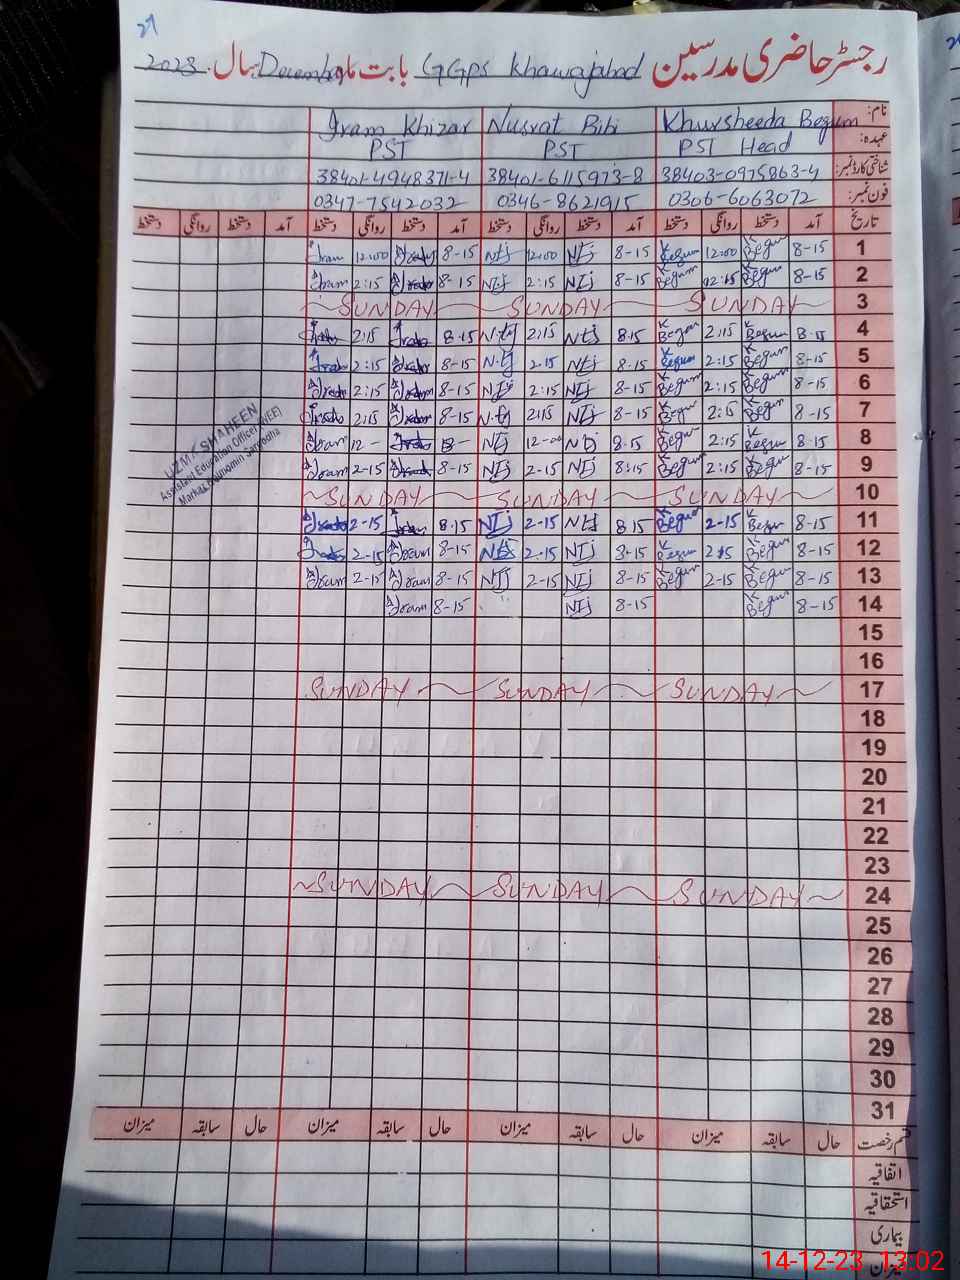 27
رجسٹر حاضری مدرسین GGPS Khawajabad بابت ماہ December سال 2023
نام: Khursheeda Begum Nusrat Bibi Iram Khizar
عہدہ: PST Head PST PST
شناختی کارڈ نمبر: 38403-0975863-4 38401-6115973-8 38401-4948371-4
فون نمبر: 0306-6063072 0346-8621915 0347-7542032
تاریخ آمد دستخط روانگی دستخط آمد دستخط روانگی دستخط آمد دستخط روانگی دستخط آمد دستخط روانگی دستخط
1 8-15 K Begum 12:00 K Begum 8-15 NIj 12:00 NIj 8-15 12:00 Iram
2 8-15 K Begum 12:15 K Begum 8-15 NIj 2:15 NIj 8-15 2:15 Iram
3 SUNDAY SUNDAY SUNDAY
4 8-15 K Begum 2:15 K Begum 8.15 Ntj 2:15 Ntj 8.15 2:15
5 8-15 K Begum 2:15 K Begum 8.15 Ntj 2.15 Ntj 8-15 2:15
6 8-15 K Begum 2:15 K Begum 8-15 NIj 2:15 NIj 8-15 2:15
7 8-15 K Begum 2:15 K Begum 8-15 NIj 2:15 Ntj 8-15 2:15
8 8.15 K Begum 2:15 K Begum 8.15 NIj 12-00 NIj 12- Iram
9 8-15 K Begum 2:15 K Begum 8:15 NIj 2-15 NIj 8-15 2-15 Iram
10 SUNDAY SUNDAY SUNDAY
11 8-15 K Begum 2-15 K Begum 8.15 Ntj 2-15 NIj 8.15 2-15
12 8-15 K Begum 2:15 K Begum 8-15 NIj 2-15 8-15 Iram 2-15
13 8-15 K Begum 2-15 K Begum 8-15 NIj 2-15 NIj 8-15 Iram 2-15 Iram
14 8-15 K Begum 8-15 NIj 8-15 Iram
15
16
17 SUNDAY SUNDAY SUNDAY
18
19
20
21
22
23
24 SUNDAY SUNDAY SUNDAY
25
26
27
28
29
30
31
قسم رخصت حال سابقہ میزان حال سابقہ میزان حال سابقہ میزان حال سابقہ میزان
اتفاقیہ
استحقاقیہ
بیماری
میزان
UZMA SHAHEEN
Assistant Education Officer (WEE)
Markaz Sargodha
14-12-23 13:02